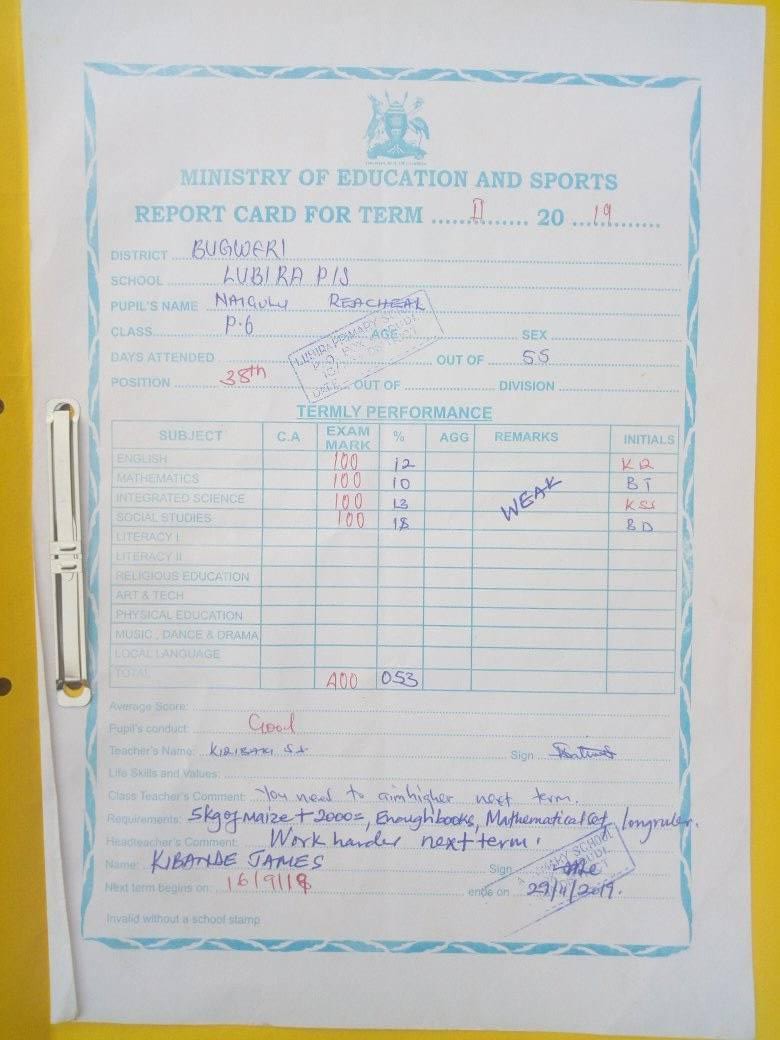 MINISTRY OF EDUCATION AND SPORTS
REPORT CARD FOR TERM II 20 19
DISTRICT BUGWERI
SCHOOL LUBIRA P/S
PUPIL'S NAME NAIGULU REACHEAL
CLASS P.6 AGE SEX
DAYS ATTENDED OUT OF 55
POSITION 38th OUT OF DIVISION
LUBIRA PRIMARY SCHOOL
TERMLY PERFORMANCE
SUBJECT C.A EXAM MARK % AGG REMARKS INITIALS
ENGLISH 100 12 KR
MATHEMATICS 100 10 BT
INTEGRATED SCIENCE 100 13 WEAK
SOCIAL STUDIES 100 18 BD
LITERACY I
LITERACY II
RELIGIOUS EDUCATION
ART & TECH
PHYSICAL EDUCATION
MUSIC , DANCE & DRAMA
LOCAL LANGUAGE
TOTAL 400 053
Average Score:
Pupil's conduct: Good
Teacher's Name: Sign
Life Skills and Values:
Class Teacher's Comment: You need to aim higher next term.
Requirements: 5kg of Maize + 2000=, Enough books, Mathematical set, long ruler.
Headteacher's Comment: Work harder next term.
Name: KIBANDE JAMES Sign
Next term begins on: 16/9/19 ends on 29/11/2019.
Invalid without a school stamp